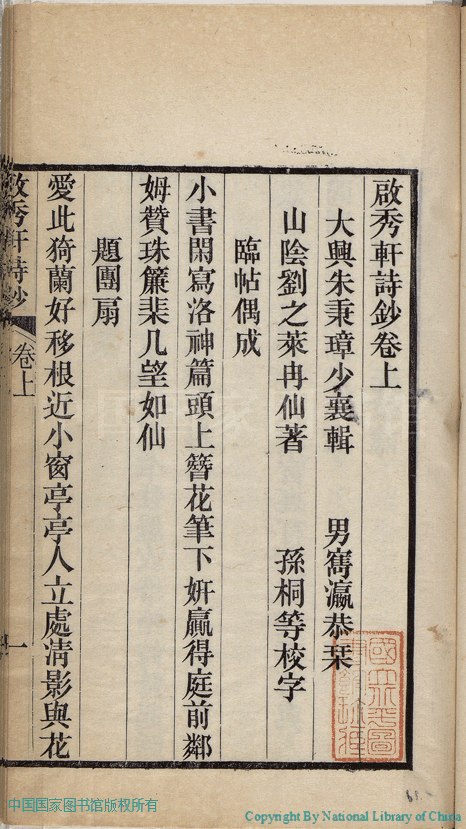 啟秀軒詩鈔卷上
大興朱秉璋少襄輯 男寯瀛恭栞
山陰劉之萊冉仙著 孫桐等校字
臨帖偶成
小書閑寫洛神篇頭上簪花筆下妍贏得庭前鄰
姆贊珠簾棐几望如仙
題團扇
愛此猗蘭好移根近小窗亭亭人立處清影與花
啟秀軒詩鈔 卷上 一
中国国家图书馆版权所有
Copyright By National Library of China